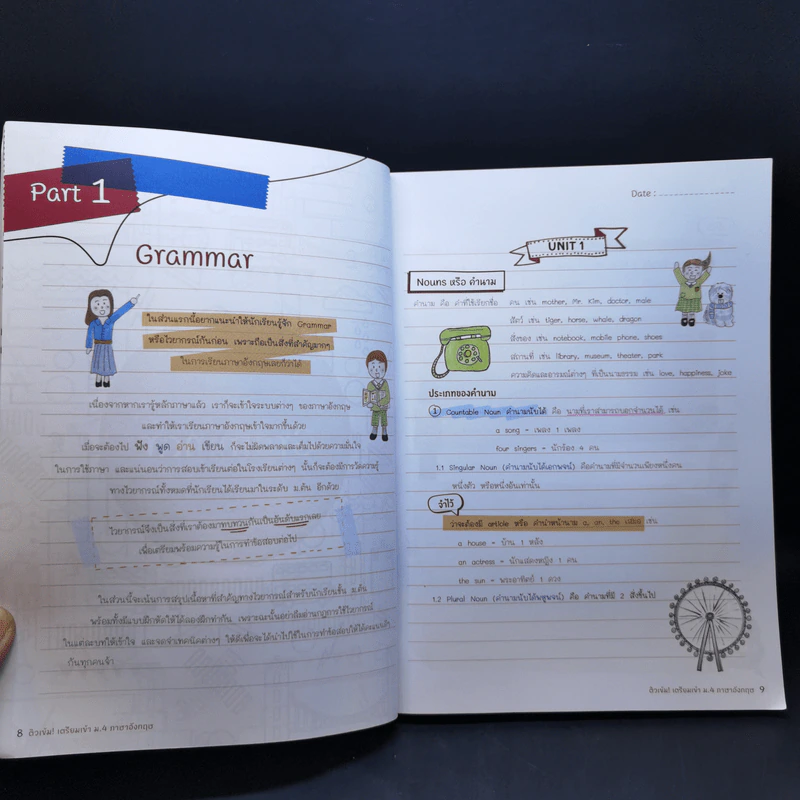 Part 1
Grammar
ในส่วนแรกนี้อยากแนะนำให้นักเรียนรู้จัก Grammar
หรือไวยากรณ์กันก่อน เพราะถือเป็นสิ่งที่สำคัญมากๆ
ในการเรียนภาษาอังกฤษเลยก็ว่าได้
เนื่องจากหากเรารู้หลักภาษาแล้ว เราก็จะเข้าใจระบบต่างๆ ของภาษาอังกฤษ
และทำให้เราเรียนภาษาอังกฤษเข้าใจมากขึ้นด้วย
เมื่อจะต้องไป ฟัง พูด อ่าน เขียน ก็จะไม่ผิดพลาดและเต็มไปด้วยความมั่นใจ
ในการใช้ภาษา และแน่นอนว่าการสอบเข้าเรียนต่อในโรงเรียนต่างๆ นั้นก็จะต้องมีการวัดความรู้
ทางไวยากรณ์ทั้งหมดที่นักเรียนได้เรียนมาในระดับ ม.ต้น อีกด้วย
ไวยากรณ์จึงเป็นสิ่งที่เราต้องมาทบทวนกันเป็นอันดับแรกเลย
เพื่อเตรียมพร้อมความรู้ในการทำข้อสอบต่อไป
ในส่วนนี้จะเน้นการสรุปเนื้อหาที่สำคัญทางไวยากรณ์สำหรับนักเรียนชั้น ม.ต้น
พร้อมทั้งมีแบบฝึกหัดให้ได้ลองฝึกทำกัน เพราะฉะนั้นอย่าลืมอ่านกฎการใช้ไวยากรณ์
ในแต่ละบทให้เข้าใจ และจดจำเทคนิคต่างๆ ให้ดีเพื่อจะได้นำไปใช้ในการทำข้อสอบให้ได้คะแนนดีๆ
กันทุกคนจ้า
8 ติวเข้ม! เตรียมเข้า ม.4 ภาษาอังกฤษ
Date :
UNIT 1
Nouns หรือ คำนาม
คำนาม คือ คำที่ใช้เรียกชื่อ คน เช่น mother, Mr. Kim, doctor, male
สัตว์ เช่น tiger, horse, whale, dragon
สิ่งของ เช่น notebook, mobile phone, shoes
สถานที่ เช่น library, museum, theater, park
ความคิดและอารมณ์ต่างๆ ที่เป็นนามธรรม เช่น love, happiness, joke
ประเภทของคำนาม
1 Countable Noun คำนามนับได้ คือ นามที่เราสามารถบอกจำนวนได้ เช่น
a song = เพลง 1 เพลง
four singers = นักร้อง 4 คน
1.1 Singular Noun (คำนามนับได้เอกพจน์) คือคำนามที่มีจำนวนเพียงหนึ่งคน
หนึ่งตัว หรือหนึ่งอันเท่านั้น
จำไว้
ว่าจะต้องมี article หรือ คำนำหน้านาม a, an, the เสมอ เช่น
a house = บ้าน 1 หลัง
an actress = นักแสดงหญิง 1 คน
the sun = พระอาทิตย์ 1 ดวง
1.2 Plural Noun (คำนามนับได้พหูพจน์) คือ คำนามที่มี 2 สิ่งขึ้นไป
ติวเข้ม! เตรียมเข้า ม.4 ภาษาอังกฤษ 9